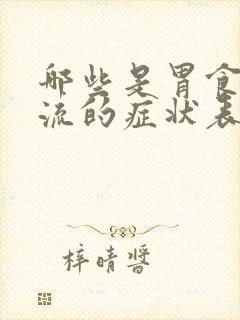 哪些是胃食
流的症状表
梓晴酱